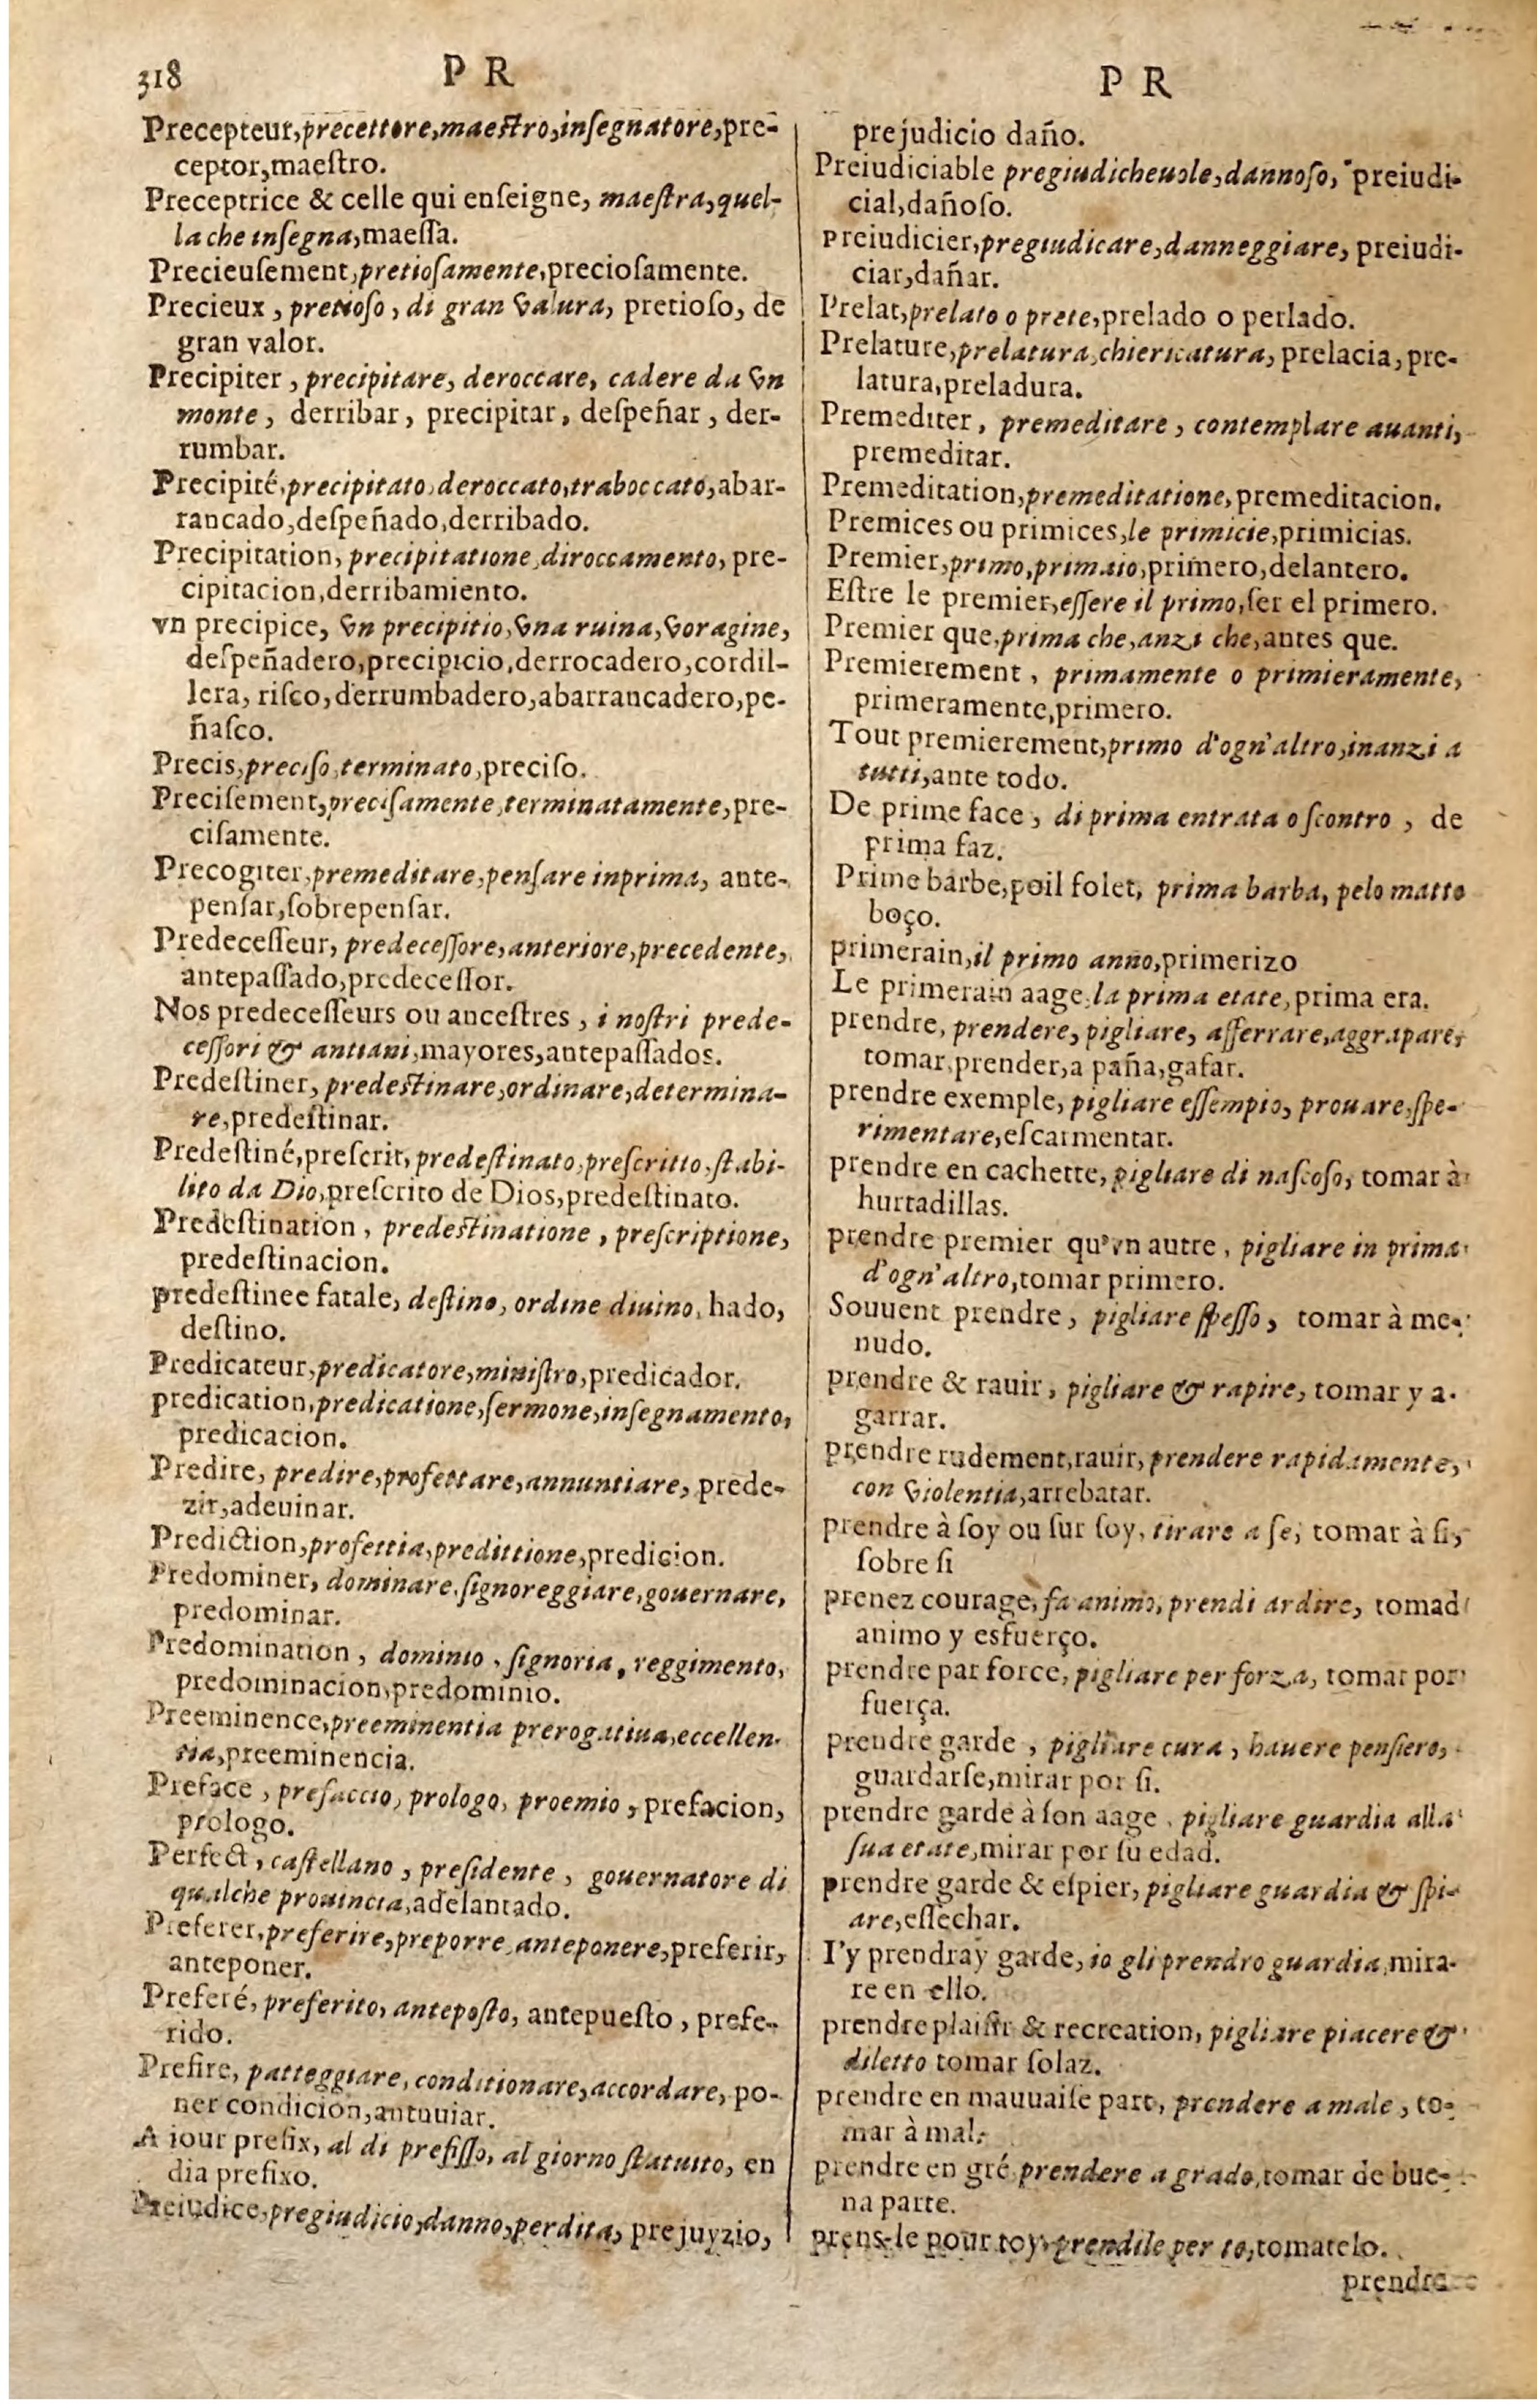 318
P R
P R
Precepteur, precettore, maestro, inſegnatore, pre-
ceptor, maeſtro.
Preceptrice & celle qui enſeigne, maeſtra, quel-
la che inſegna, maeſſa.
Precieuſement, pretioſamente, precioſamente.
Precieux, pretioſo, di gran valura, pretioſo, de
gran valor.
Precipiter, precipitare, deroccare, cadere da vn
monte, derribar, precipitar, deſpeñar, der-
rumbar.
Precipité, precipitato, deroccato, traboccato, abar-
rancado, deſpeñado, derribado.
Precipitation, precipitatione, diroccamento, pre-
cipitacion, derribamiento.
vn precipice, vn precipitio, vna ruina, voragine,
deſpeñadero, precipicio, derrocadero, cordil-
lera, riſco, derrumbadero, abarrancadero, pe-
ñaſco.
Precis, preciſo, terminato, preciſo.
Preciſement, preciſamente, terminatamente, pre-
ciſamente.
Precogiter, premeditare, penſare inprima, ante-
penſar, ſobrepenſar.
Predeceſſeur, predeceſſore, anteriore, precedente,
antepaſſado, predeceſſor.
Nos predeceſſeurs ou anceſtres, i noſtri prede-
ceſſori & antiani, mayores, antepaſſados.
Predeſtiner, predeſtinare, ordinare, determina-
re, predeſtinar.
Predeſtiné, preſcrit, predeſtinato, preſcritto, ſtabi-
lito da Dio, preſcrito de Dios, predeſtinato.
Predeſtination, predeſtinatione, preſcriptione,
predeſtinacion.
predeſtinee fatale, deſtino, ordine diuino, hado,
deſtino.
Predicateur, predicatore, miniſtro, predicador.
predication, predicatione, ſermone, inſegnamento,
predicacion.
Predire, predire, profettare, annuntiare, prede-
zir, adeuinar.
Prediction, profettia, predittione, predicion.
Predominer, dominare, ſignoreggiare, gouernare,
predominar.
Predomination, dominio, ſignoria, reggimento,
predominacion, predominio.
Preeminence, preeminentia prerogatiua, eccellen-
tia, preeminencia.
Preface, prefaccio, prologo, proemio, prefacion,
prologo.
Perfect, caſtellano, preſidente, gouernatore di
qualche prouincia, adelantado.
Preferer, preferire, preporre, anteponere, preferir,
anteponer.
Preferé, preferito, antepoſto, antepueſto, prefe-
rido.
Prefire, patteggiare, conditionare, accordare, po-
ner condicion, antuuiar.
A iour prefix, al di prefiſſo, al giorno ſtatuito, en
dia prefixo.
Preiudice, pregiudicio, danno, perdita, prejuyzio,
prejudicio daño.
Preiudiciable pregiudicheuole, dannoſo, preiudi-
cial, dañoſo.
preiudicier, pregiudicare, danneggiare, preiudi-
ciar, dañar.
Prelat, prelato o prete, prelado o perlado.
Prelature, prelatura, chiericatura, prelacia, pre-
latura, preladura.
Premediter, premeditare, contemplare auanti,
premeditar.
Premeditation, premeditatione, premeditacion.
Premices ou primices, le primicie, primicias.
Premier, primo, primaio, primero, delantero.
Eſtre le premier, eſſere il primo, ſer el primero.
Premier que, prima che, anzi che, antes que.
Premierement, primamente o primieramente,
primeramente, primero.
Tout premierement, primo d'ogn'altro, inanzi a
tutti, ante todo.
De prime face, di prima entrata o ſcontro, de
prima faz.
Prime barbe, poil folet, prima barba, pelo matto
boço.
primerain, il primo anno, primerizo
Le primerain aage, la prima etate, prima era.
prendre, prendere, pigliare, afferrare, aggrapare,
tomar, prender, a paña, gafar.
prendre exemple, pigliare eſſempio, prouare, ſpe-
rimentare, eſcarmentar.
prendre en cachette, pigliare di naſcoſo, tomar à
hurtadillas.
prendre premier qu'vn autre, pigliare in prima
d'ogn'altro, tomar primero.
Souuent prendre, pigliare ſpeſſo, tomar à me-
nudo.
prendre & rauir, pigliare & rapire, tomar y a-
garrar.
prendre rudement, rauir, prendere rapidamente,
con violentia, arrebatar.
prendre à ſoy ou ſur ſoy, tirare a ſe, tomar à ſi,
ſobre ſi
prenez courage, fa animo, prendi ardire, tomad
animo y esfuerço.
prendre par force, pigliare per forza, tomar por
fuerça.
prendre garde, pigliare cura, hauere penſiero,
guardarſe, mirar por ſi.
prendre garde à ſon aage, pigliare guardia alla
ſua etate, mirar por ſu edad.
prendre garde & eſpier, pigliare guardia & ſpi-
are, eſſechar.
I'y prendray garde, io gli prendro guardia, mira-
re en ello.
prendre plaiſir & recreation, pigliare piacere &
diletto tomar ſolaz.
prendre en mauuaiſe part, prendere a male, to-
mar à mal.
prendre en gré, prendere a grado, tomar de bue-
na parte.
prens-le pour toy, prendile per te, tomatelo.
prendre